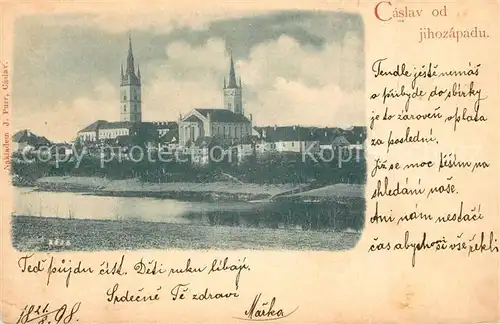 Cáslav od
jihozápadu.
Nakladem J. Purr, Cáslav.
Tendle ještě nemáš
a přibyde do sbírky
je to zároveň oplata
za poslední.
Již se moc těším na
shledání naše.
Ani nám nestačí
čas abychom si vše řekli
Teď půjdu číst. Děti ruku líbají.
Srdečně Tě zdraví
Mařka
98.